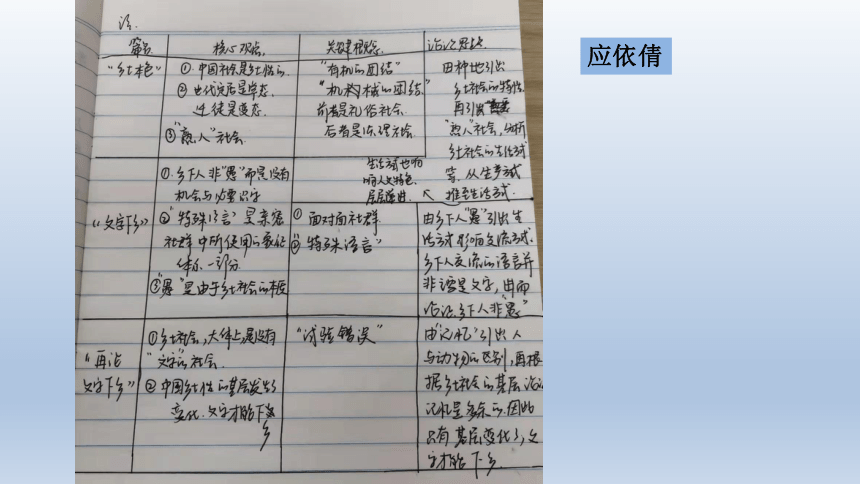 法.
篇名 核心观点 关键概念 论证思路
"乡土本色"
①.中国社会是乡土性的.
②世代定居是常态.
迁徙是变态.
③"熟人"社会.
"有机的团结"
"机械的团结"
前者是礼俗社会.
后者是法理社会.
由种地引出
乡土社会的特性.
再引出
"熟人"社会,
乡土社会的生活方式
等.从生产方式
推至生活方式.
生活方式也
响人文特色.
层层递进.
"文字下乡"
①.乡下人非"愚"而是没有
机会与必要识字
②"特殊语言"是亲密
社群中所使用的象征
体系一部分.
③"愚"是由于乡土社会的本质
①面对面社群
②"特殊语言"
由乡下人"愚"引出生
活方式影响交流方式.
乡下人交流的语言并
非定是文字,由而
论证乡下人非"愚"
"再论
文字下乡"
①乡土社会,大体上是没有
"文字"的社会.
②中国乡土性的基层发生了
变化.文字才能下
乡
"试验错误"
由"记忆"引出人
与动物的区别,再根
据乡土社会的基层论证
记忆是多余的.因此
只有基层变化了,文
字才能下乡.
应依倩